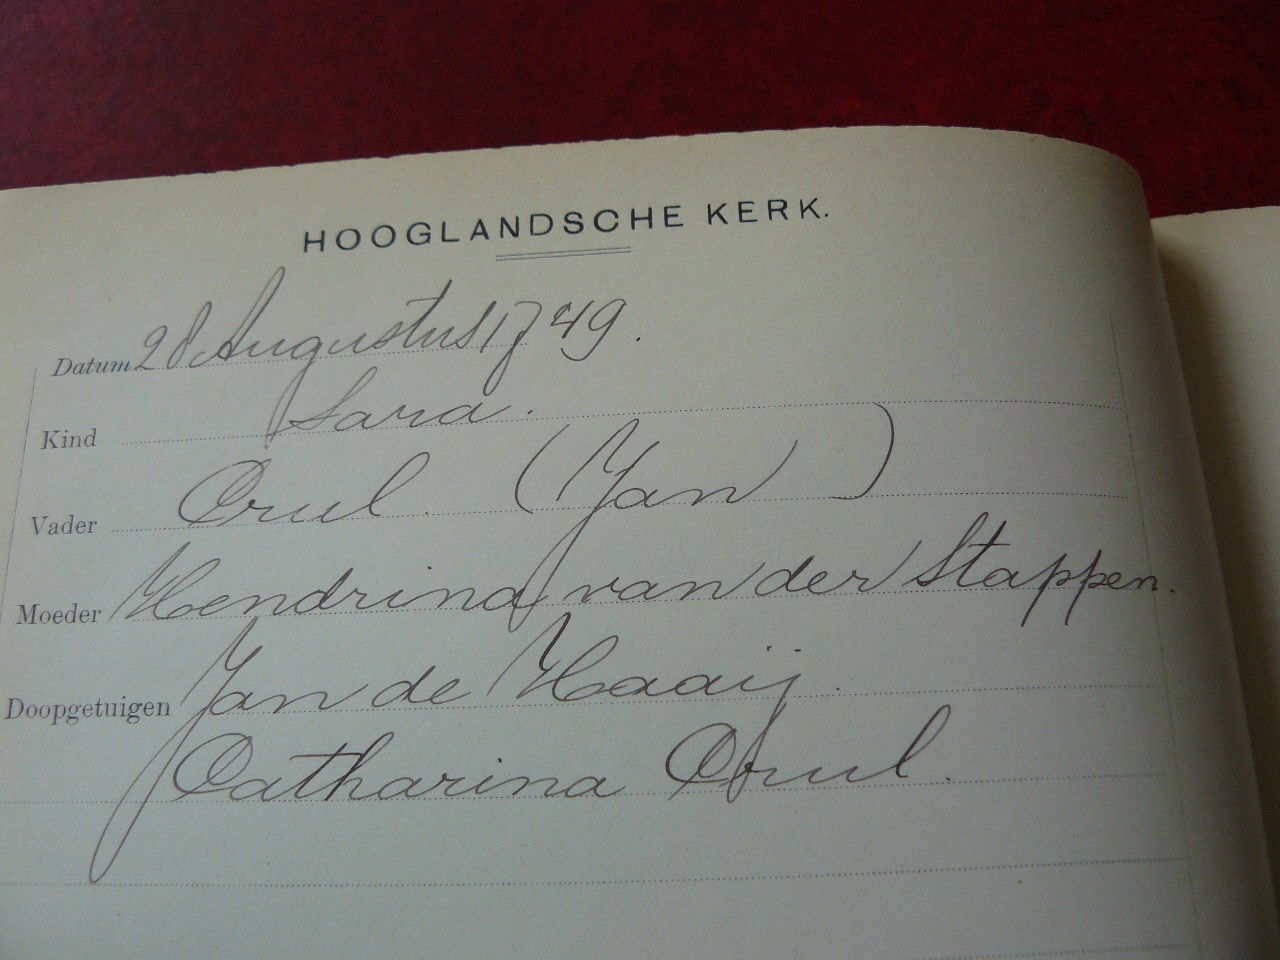 HOOGLANDSCHE KERK.
Datum 28 Augustus 1749.
Kind Sara.
Vader Crul. (Jan)
Moeder Hendrina van der Stappen.
Doopgetuigen Jan de Haaij.
Catharina Crul.